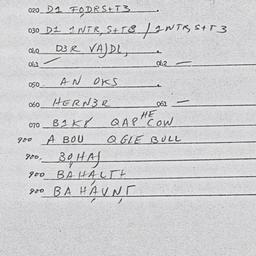 020 D1 FODRS+T3.
030 D1 INTR, S+T3 / 1NTR, S+T3
040 D3R VAJDL,
041 — 042 —
050 AN OKS.
060 HERN3R 061 —
070 B1KY QAP HE COW
900 A BOU QGIE BULL
900, 3QHAJ
900 BAHALT+
900 BAHAVNT